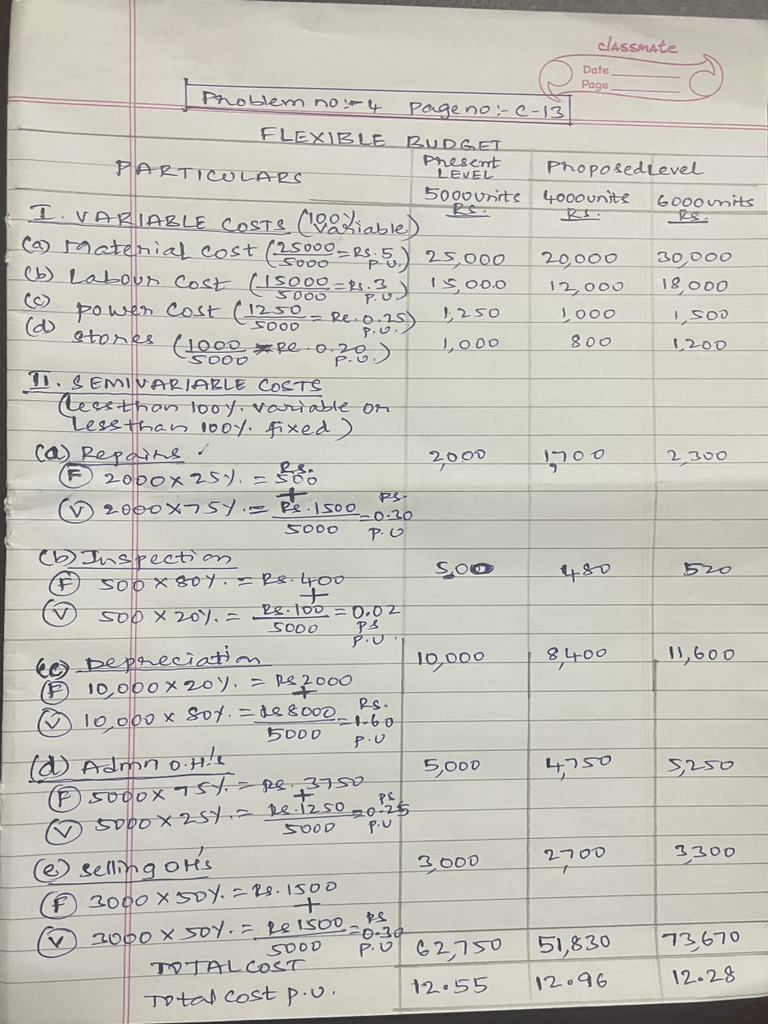 classmate
Date
Page
Problem no:-4 Page no:- C-13
FLEXIBLE BUDGET
PARTICULARS Present LEVEL Proposed Level
5000 units 4000 units 6000 units
Rs. Rs. Rs.
I. VARIABLE COSTS (100% Variable)
(a) Material cost (25000/5000 = Rs. 5 P.U.) 25,000 20,000 30,000
(b) Labour cost (15000/5000 = Rs. 3 P.U.) 15,000 12,000 18,000
(c) Power cost (1250/5000 = Re. 0.25 P.U.) 1,250 1,000 1,500
(d) stores (1000/5000 = Re. 0.20 P.U.) 1,000 800 1,200
II. SEMIVARIABLE COSTS
(Less than 100%. variable or
Less than 100%. fixed)
(a) Repairs 2,000 1,700 2,300
(F) 2000 x 25%. = Rs. 500
+
(V) 2000 x 75%. = Rs. 1500/5000 = 0.30 Ps. P.U
(b) Inspection 500 480 520
(F) 500 x 80%. = Rs. 400
+
(V) 500 x 20%. = Rs. 100/5000 = 0.02 PS P.U.
(c) Depreciation 10,000 8,400 11,600
(F) 10,000 x 20%. = Rs 2000
+
(V) 10,000 x 80%. = Rs 8000/5000 = 1.60 Rs. P.U
(d) Admn O.H's 5,000 4,750 5,250
(F) 5000 x 75%. = Rs. 3750
+
(V) 5000 x 25%. = Rs. 1250/5000 = 0.25 PS P.U
(e) Selling OH's 3,000 2,700 3,300
(F) 3000 x 50%. = Rs. 1500
+
(V) 3000 x 50%. = Rs 1500/5000 = 0.30 PS P.U
TOTAL COST 62,750 51,830 73,670
Total cost P.U. 12.55 12.96 12.28